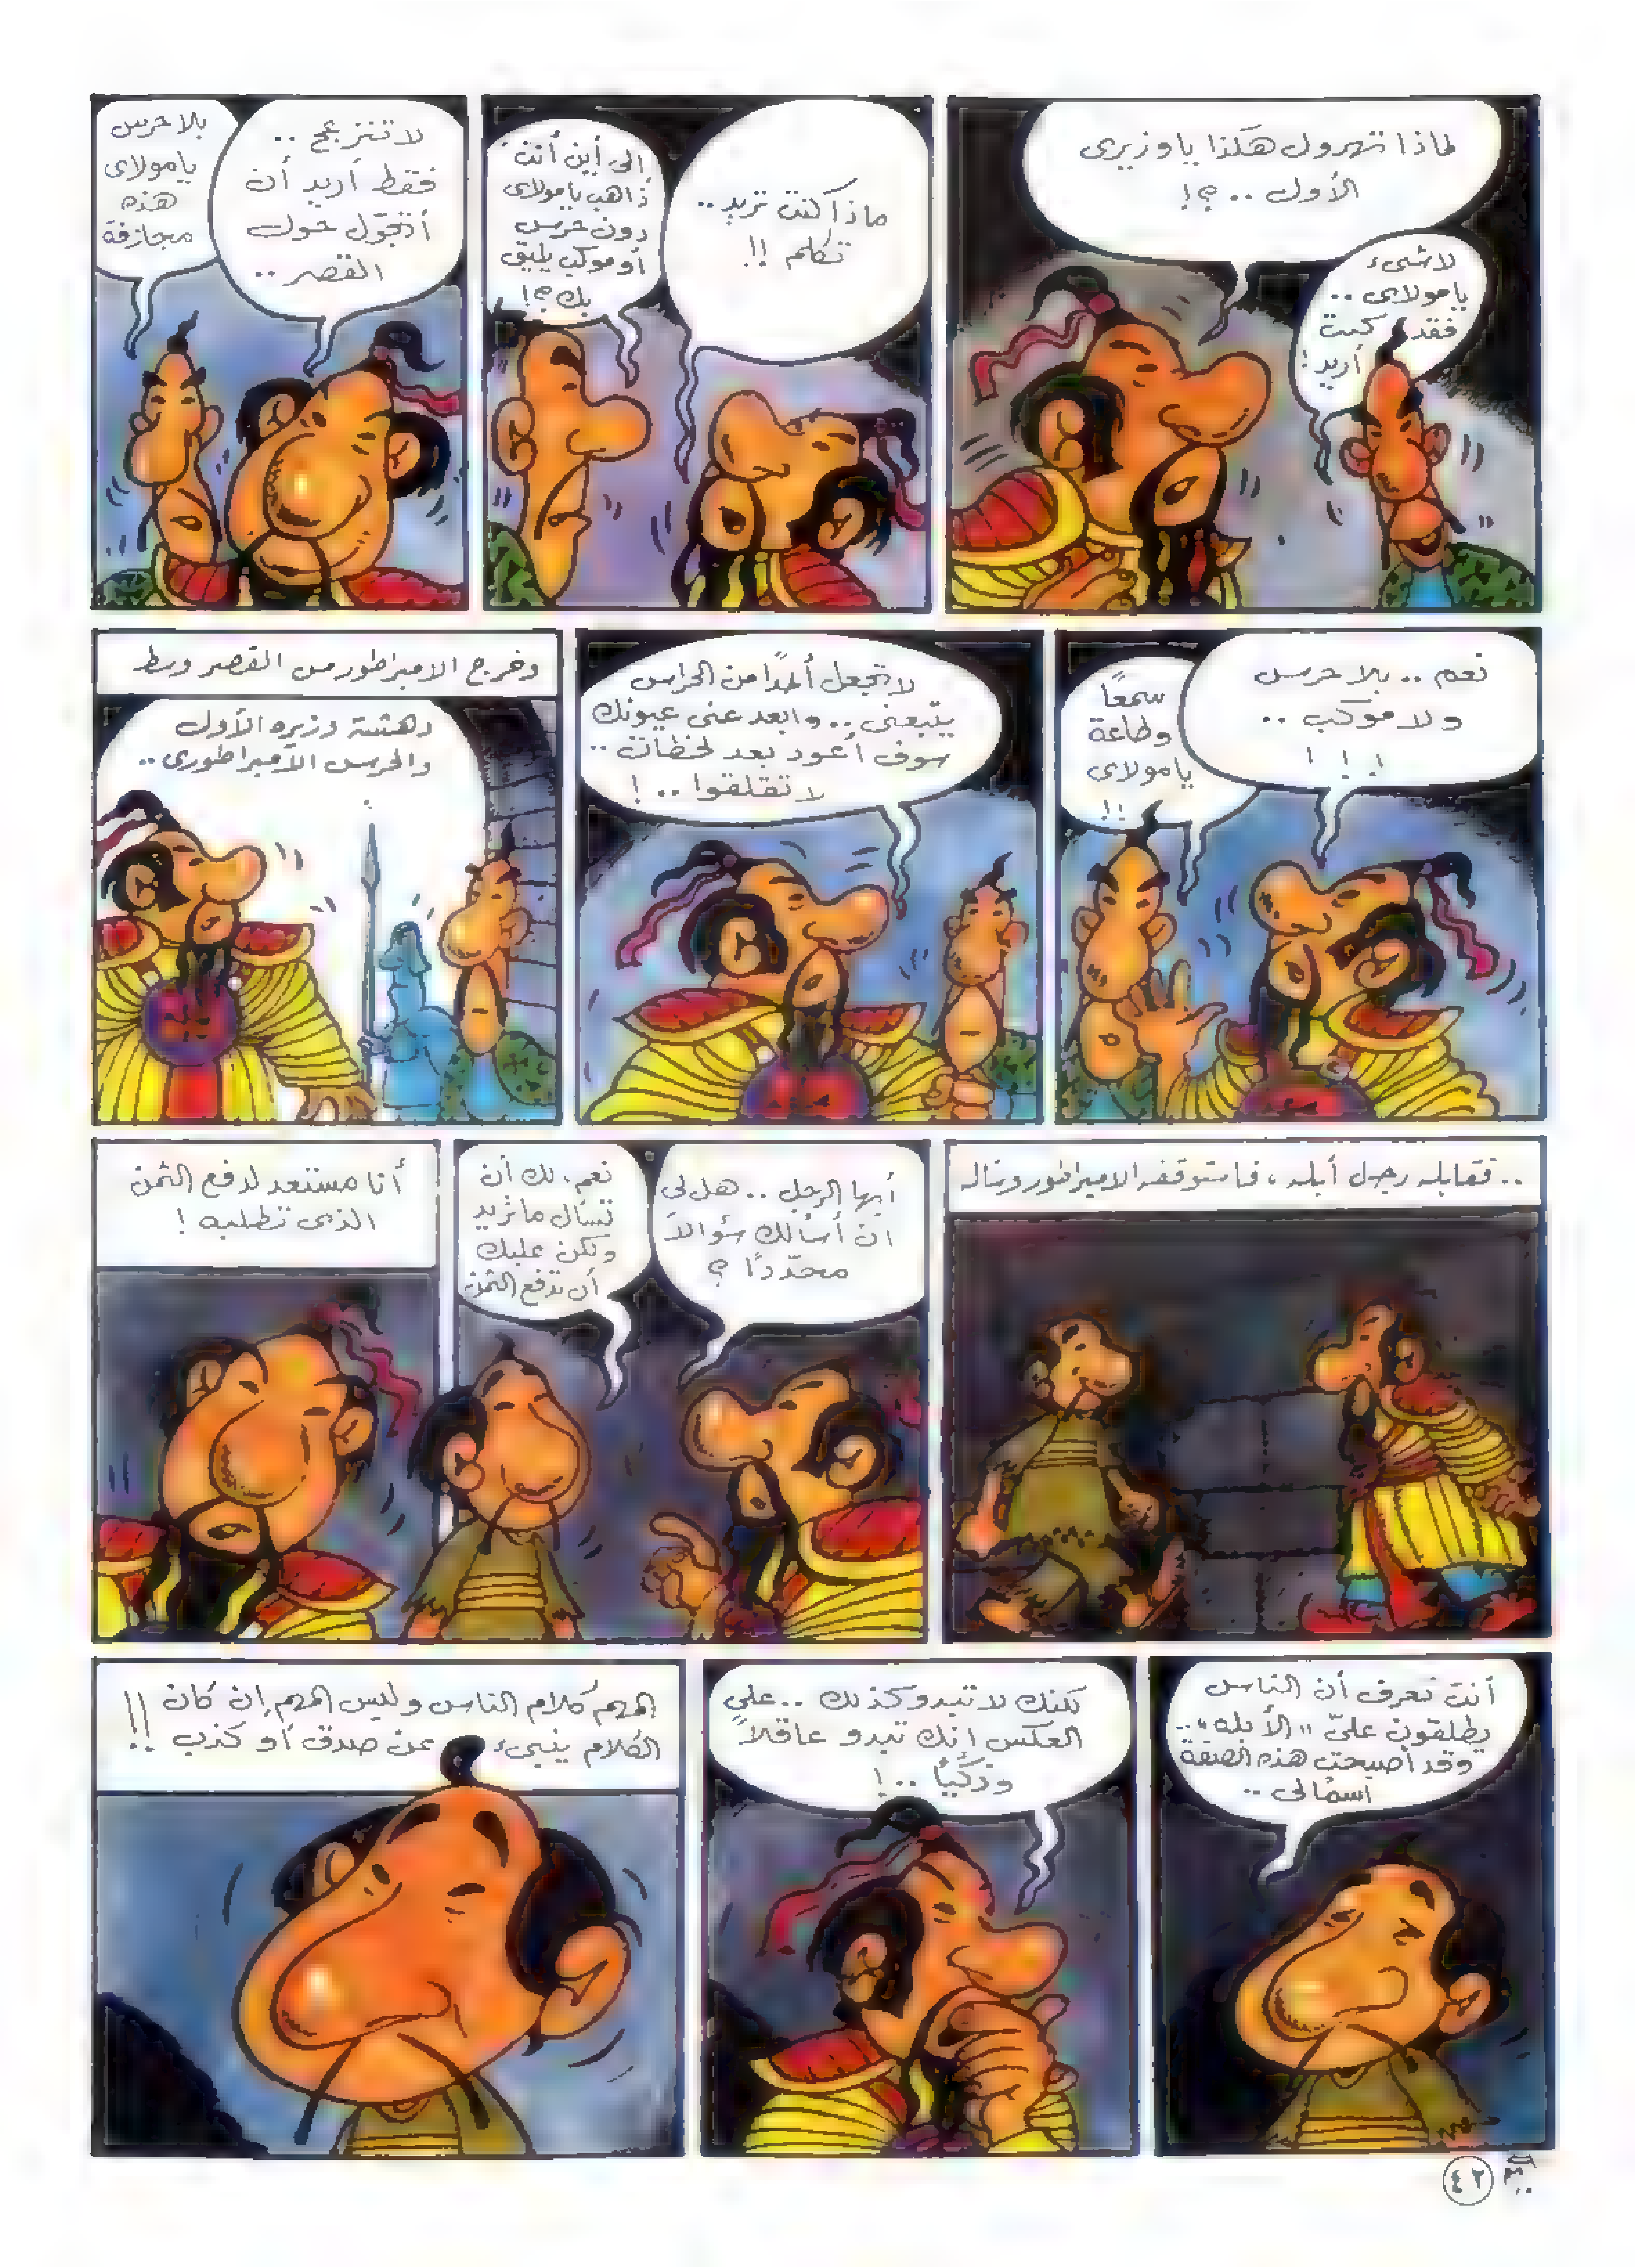 لماذا تهرول هكذا يا وزيرى
الأول ..؟!
لاشىء
يامولاى ..
فقد كنت
أريد !
ماذا كنت تريد ..
تكلم !!
إلى أين أنت
ذاهب يامولاى
دون حرس
أو موكب يليق
بك ؟!
لا تنزعج ..
فقط أريد أن
أتجوّل حول
القصر ..
بلا حرس
يامولاى
هذه
مجازفة
نعم .. بلا حرس
ولا موكب ..
! ! !
سمعًا
وطاعة
يامولاى
!!
لا تجعل أحدًا من الحراس
يتبعنى .. وابعد عنى عيونك
سوف أعود بعد لحظات ..
لا تقلقوا .. !
وخرج الامبراطور من القصر وسط
دهشة وزيره الأول
والحرس الامبراطورى ..
.. فقابله رجل أبله ، فاستوقفه الامبراطور وسأله
أيها الرجل .. هل لى
أن أسألك سؤالاً
محدّدًا ؟
نعم. لك أن
تسأل ما تريد
ولكن عليك
أن تدفع الثمن
أنا مستعد لدفع الثمن
الذى تطلبه !
أنت تعرف أن الناس
يطلقون علىّ "الأبله" ..
وقد أصبحت هذه الصفة
اسمًا لى ..
لكنك لا تبدو كذلك .. على
العكس إنك تبدو عاقلاً
وذكيًا ..!
المهم كلام الناس وليس المهم إن كان
الكلام ينبىء عن صدق أو كذب !!
٤٢